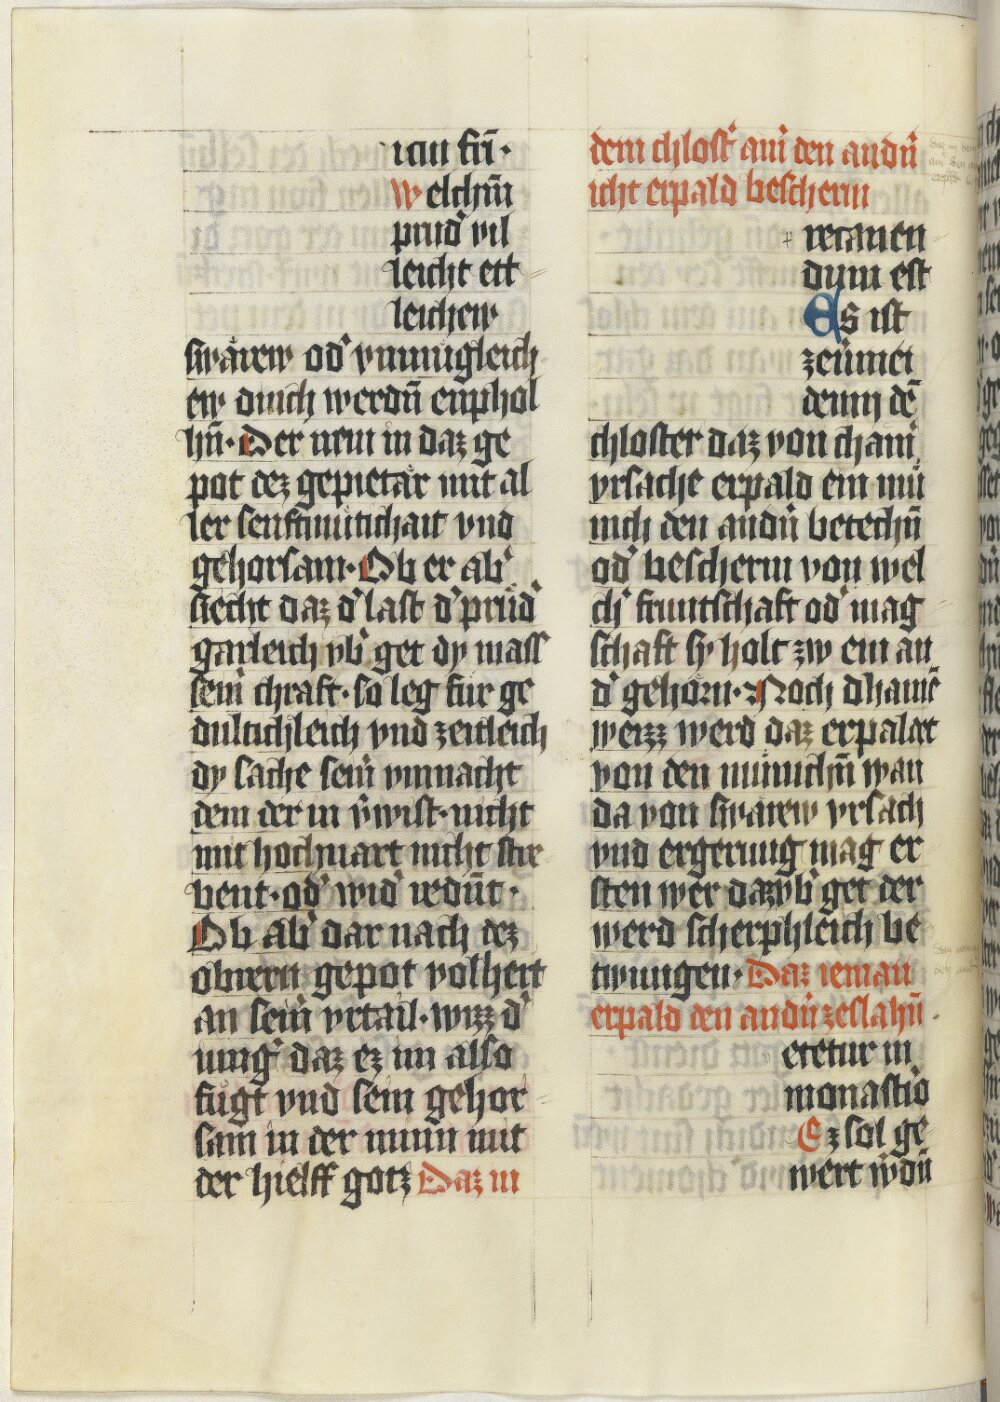 icui fr̄i·
Welchm̄
prud᷑ vil
leicht ett
leichew
swärew od᷑ vnmugleich
ew dinch werdn̄ enphol
hn̄· Der nem in daz ge
pot dez gepietär mit al
ler senftmutichait vnd
gehorsam· Ob er ab᷑
siecht daz d᷑ last d᷑ prüd᷑
garleich vb᷑ get dy mass
seīn chraft· so leg für ge
dultichleich vnd zeitleich
dy sache seīn vnmacht
dem der in v̄wist· nicht
mit hochuart nicht stre
bent· od᷑ wid᷑ redūt·
Ob ab᷑ dar nach dez
obrern gepot volhert
an seīn vrtail· wizz d᷑
iung᷑ daz ez im also
fügt vnd sein gehor
sam in der minn mit
der hielff gotz Daz in
dem chlost᷑ aīn den andn̄
icht erpald bescherm
recauen
dum est
Es ist
zeūmei
denn dē
chloster daz von chaīn
vrsache erpald ein mü
nich den andn̄ betechn̄
od᷑ bescherm von wel
ch᷑ frwntschaft od᷑ mag
schaft sy holt zw ein an
d᷑ gehörn· Noch dhainē
weizz werd daz erpalдet
von den münichn̄ wan
da von swärew vrsach
vnd ergerung mag er
sten wer dazvb᷑ get der
werd scherphleich be
twungen· Daz ieman
erpald den andn̄ zeslahn̄
etetur in
monastio
Ez sol ge
wert w̄dn̄